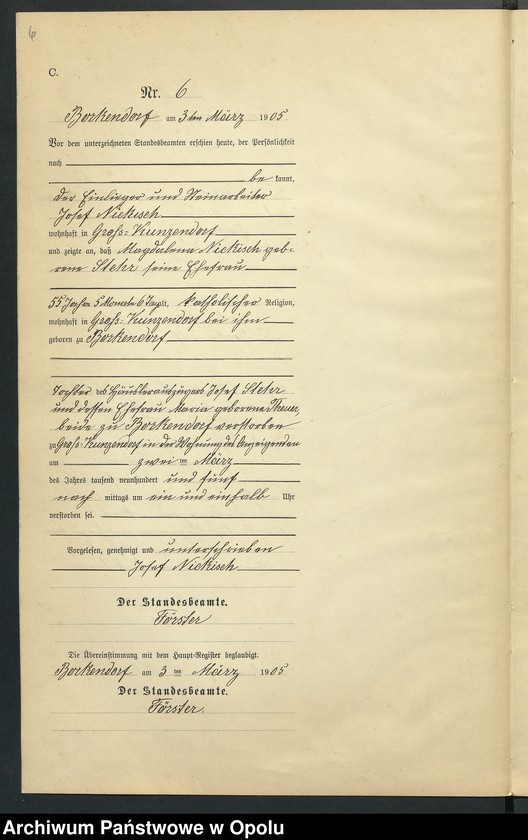 6
C.
Nr. 6
Borkendorf am 3 ten März 1905
Vor dem unterzeichneten Standesbeamten erschien heute, der Persönlichkeit
nach
be kannt,
der Einlieger und Steinarbeiter
Josef Nickisch
wohnhaft in Groß-Kunzendorf
und zeigte an, daß Magdalena Nickisch geb-
rene Stehr seine Ehefrau
55 Jahre 5 Monate 6 Tag alt, katholischer Religion,
wohnhaft in Groß-Kunzendorf bei ihm
geboren zu Borkendorf
Tochter des Häuslerauszüglers Josef Stehr
und dessen Ehefrau Maria geborene
beide zu Borkendorf verstorben
zu Groß-Kunzendorf in der Wohnung des Anzeigenden
am zwei ten März
des Jahres tausend neunhundert und fünf
nach mittags um ein und einhalb Uhr
verstorben sei.
Vorgelesen, genehmigt und unterschrieben
Josef Nickisch
Der Standesbeamte.
Förster
Die Übereinstimmung mit dem Haupt-Register beglaubigt.
Borkendorf am 3 ten März 1905
Der Standesbeamte.
Förster.
Archiwum Państwowe w Opolu